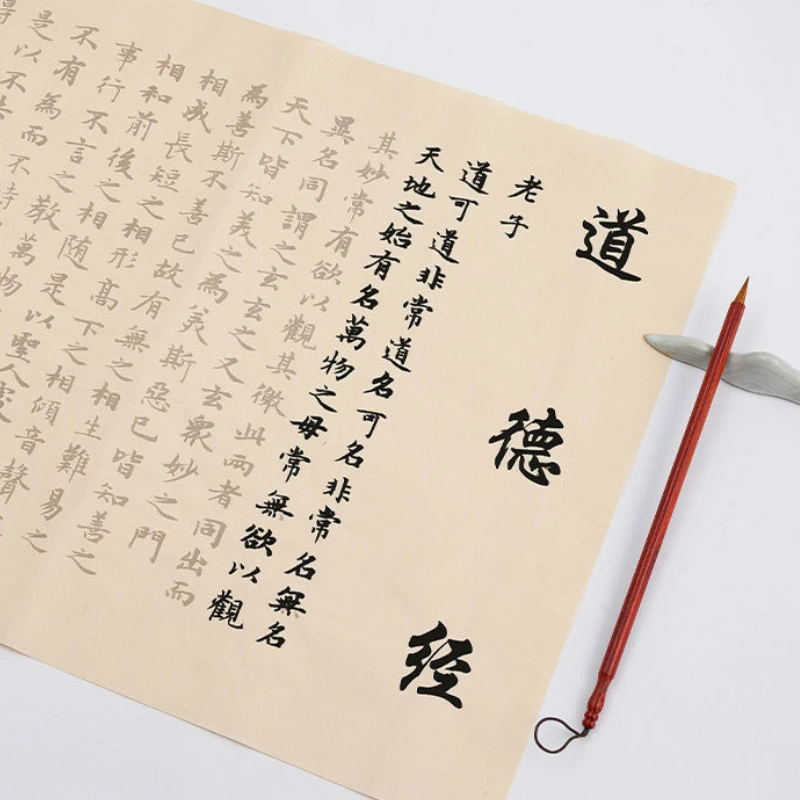 道德经
老子
道可道非常道名可名非常名無名
天地之始有名萬物之母常無欲以觀
其妙常有欲以觀其徼此兩者同出而
異名同謂之玄玄之又玄衆妙之門
天下皆知美之為美斯惡已皆知善之
為善斯不善已故有無之相生難易之
相成長短之相形高下之相傾音聲之
相和前後之相随是以聖人處
事行不言之教萬物
不有為而不恃
是以不去